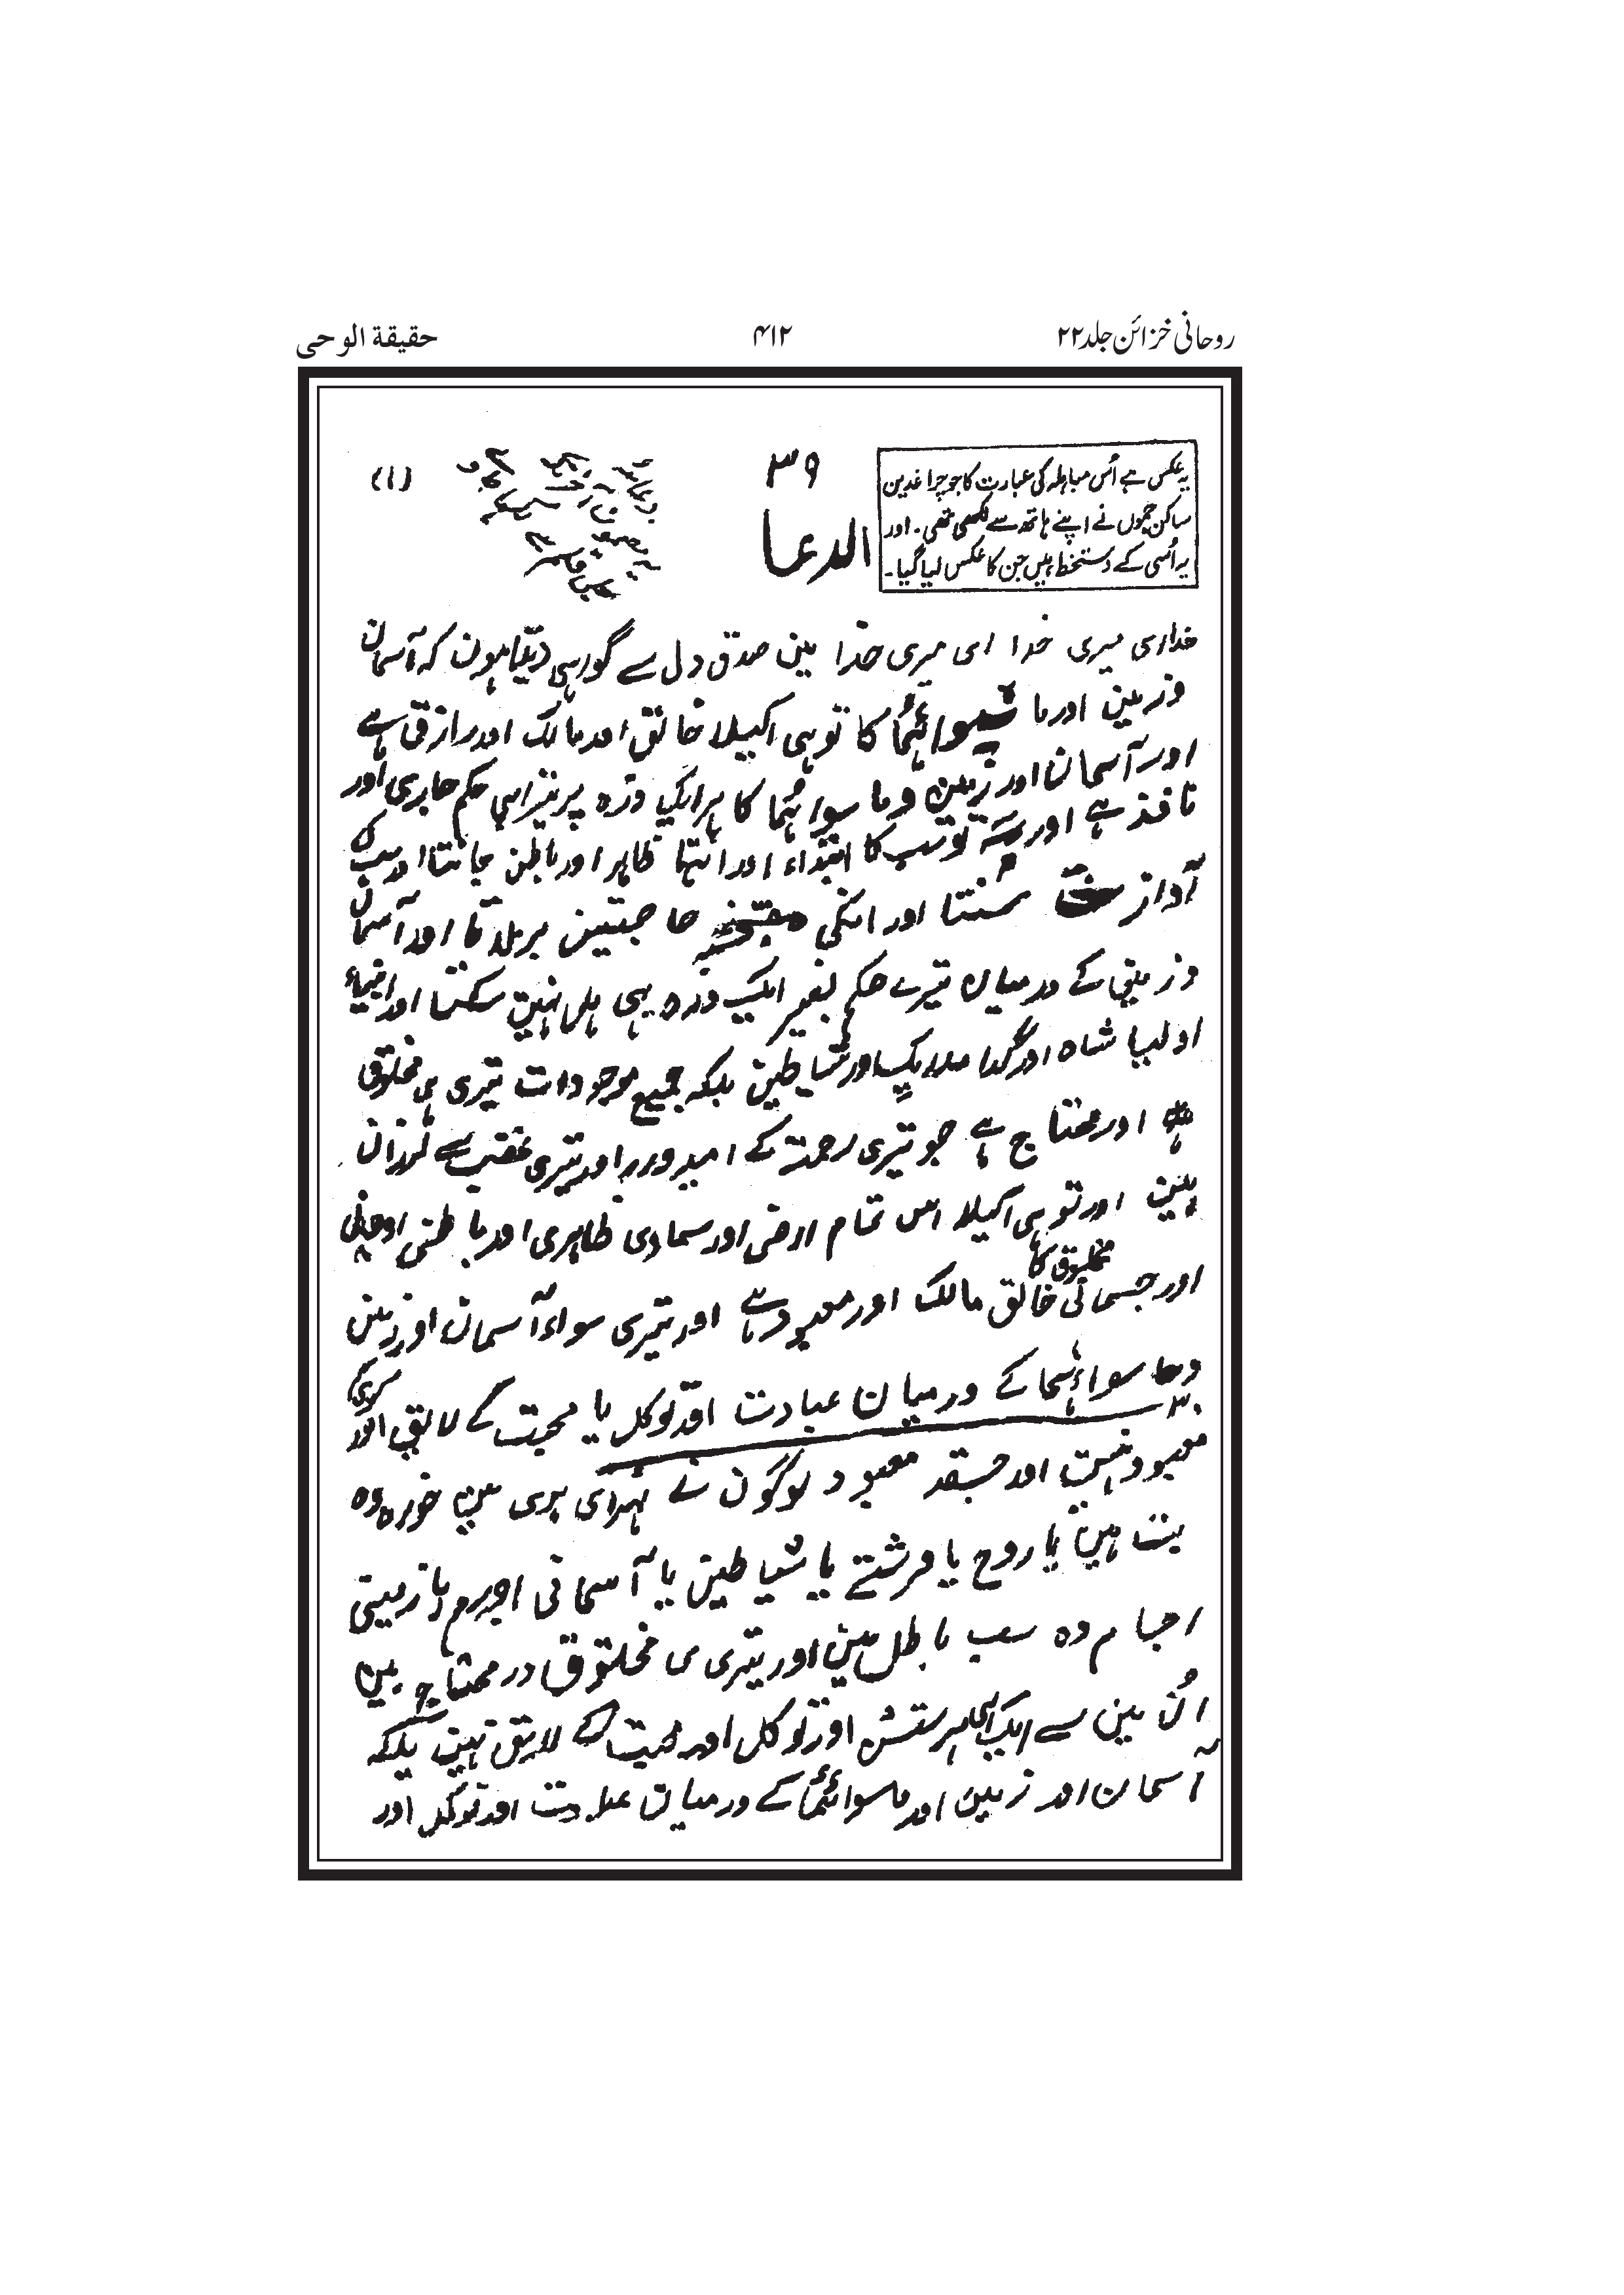 روحانی خزائن جلد۲۲
۴۱۲
حقیقۃ الوحی
یہ عکس ہے اُس مباہلہ کی عبارت کا جو چراغدین
ساکن جموں نے اپنے ہاتھ سے لکھی تھی۔ اور
یہ اُسی کے دستخط ہیں جن کا عکس لیا گیا۔
۳۹
الدعا
(۱)
ای میری خدا ای میری خدا مین صدق دل سے گورہی دیتا ہون کہ آسمان
و زمین اور ما سوائہُما کا توہی اکیلا خالق اور مالک اور رازق ہے
اور آسمان اور زمین و ما سوائہُما کا ہر ایک ذرہ پر تیراہی حکم جاری اور
نافذ ہے اور تو سب کا ابتداء اور انتہا ظاہر اور باطن جانتا اور سب کی
آواز سُنتا اور انکی حاجتین برلاتا اور آسمان
و زمین کے درمیان تیرے حکم بغیر ایک ذرہ بہی ہل نہین سکتا اور انبیاء
اولیا شاہ اور گدا ملایک اور شیاطین بلکہ جمیع موجودات تیری ہی مخلوق
اور محتاج ہے جو تیری رحمت کے امیدوار اور تیری غضب سے لرزان
ہین اور توہی اکیلا اس تمام ارضی اور سماوی ظاہری اور باطنی روحانی
اور جسمانی مخلوق کا خالق مالک اور معبود ہے اور تیری سواء آسمان اور زمین
وما سواءہُما کے درمیان عبادت اور توکل یا محبت کے لایق اور کوئی
معبود نہین اور جسقدر معبود لوگون نے ٹہرائی ہوی ہین خواہ وہ
بت ہین یا روح یا فرشتے یا شیاطین یا آسمانی اجرام یا زمینی
اجسام وہ سب باطل ہین اور تیری ہی مخلوق اور محتاج ہین
اُن مین سے ایک بہی پرستش اور توکل اور محبت کے لایق نہین بلکہ
آسمان اور زمین اور ما سوائہُما کے درمیان عبادت اور توکل اور